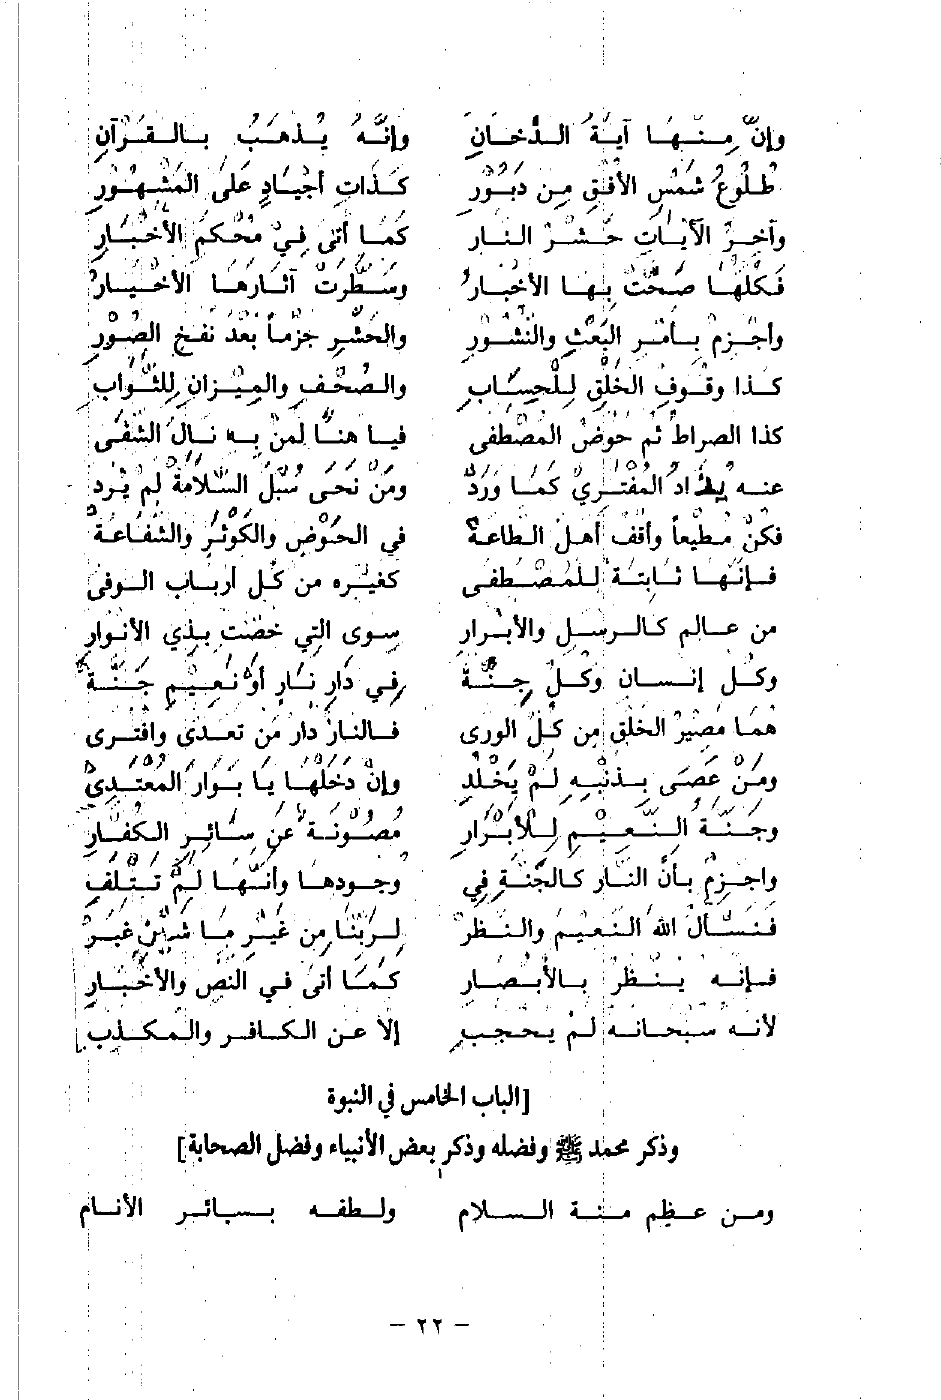 وإنّ مِنْها آيَةُ الدُّخَانِ وإنَّهُ يُذهَبُ بِالقُرْآنِ
طُلُوعُ شَمْسِ الأُفُقِ مِن دَبُوْرِ كَذَاتِ أجْيَادٍ عَلَى المَشْهُوْرِ
وآخِرُ الآيَاتِ حَشْرُ النارِ كَمَا أتَى فِيْ مُحْكَمِ الأخْبَارِ
فَكُلُّهَا صَحَّتْ بِهَا الأخْبَارُ وسَطَّرَتْ آثَارَهَا الأخْيَارُ
وأجْزِمْ بِأمْرِ البَعْثِ والنُّشُوْرِ والحَشْرِ جَزْماً بَعْدَ نَفْخِ الصُّوْرِ
كَذا وقُوْفِ الخَلْقِ لِلْحِسَابِ والصُّحْفِ والمِيْزَانِ لِلثَّوابِ
كذا الصراطُ ثُمّ حوضُ المُصْطَفى فيا هنَا لمَنْ بِهِ نَالَ الشِّفَى
عنهُ يُذَادُ المُفْتَرِيْ كَمَا وَرَدْ ومَنْ نَحَى سُبُلَ السَّلَامَةِ لَمْ يُرَدْ
فكنْ مُطِيعاً وأقْفُ أهلَ الطاعَةْ في الحَوْضِ والكَوْثَرِ والشَّفاعَةْ
فإنَّها ثابِتَةٌ لِلمُصْطَفى كغيْرِه من كُلِّ أربابِ الوفى
من عالمٍ كالرسلِ والأبْرارِ سوى التي خصَّتْ بِذي الأنوارِ
وكُلُّ إنسانٍ وكُلُّ جِنَّةْ فِي دَارِ نَارٍ أوْ نَعِيْمِ جَنَّةْ
هما مَصِيْرُ الخلْقِ مِن كلِّ الورى فالنارُ دارُ مَن تعدَّى وافترى
ومَنْ عَصَى بِذنْبِهِ لَمْ يَخْلُدِ وإنْ دخَلَها يا بَوارَ المُعْتَدِيْ
وجَنَّةُ النَّعِيْمِ لِلأبْرَارِ مَصُوْنَةٌ عَنْ سَائِرِ الكُفَّارِ
واجْزِمْ بأنَّ النّارَ كالجَنَّةِ فِي وجُودِها وأنَّها لَمْ تَتْلَفِ
فنَسْألُ اللهَ النَّعيْمَ والنَّظَرْ لِرَبِّنَا مِن غَيْرِ مَا شَيْنٍ غَبَرْ
فإنه يُنْظَرُ بالأبْصارِ كَمَا أتَى في النَّصِّ والأخْبَارِ
لأنه سبحانه لمْ يحجبِ إلا عن الكافر والمكذبِ
[الباب الخامس في النبوة
وذكر محمد ﷺ وفضله وذكر بعض الأنبياء وفضل الصحابة]
ومن عظيم منة السلام ولطفه بسائر الأنام
- ٢٢ -